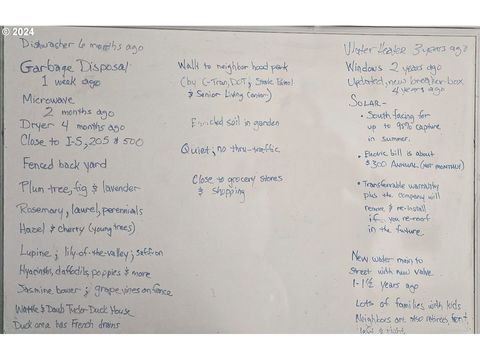 © 2024
Dishwasher 6 months ago
Garbage Disposal
1 week ago
Microwave
2 months ago
Dryer 4 months ago
Close to I-5, 205 & 500
Fenced back yard
Plum tree, fig & lavender
Rosemary, laurel, perennials
Hazel & Cherry (young trees)
Lupine; lily-of-the-valley; saffron
Hyacinths, daffodils, poppies & more
Jasmine bower; grape vines on fence
Wattle & Daub Tudor Duck House
Duck area has French drains
Walk to neighborhood park
(by C-Tran, DOT; State Patrol
& Senior Living Center)
Enriched soil in garden
Quiet, no thru-traffic
Close to grocery stores
& shopping
Water Heater 3 years ago
Windows 2 years ago
Updated, new breaker box
4 years ago
SOLAR-
• South facing for
up to 95% capture
in summer.
• Electric bill is about
$300 ANNUAL (NOT MONTHLY)
• Transferrable warranty
plus the company will
remove & re-install
if you re-roof
in the future.
New water main to
street with new valve
1-1½ years ago
Lots of families with kids
Neighbors are also retirees, front,
left & right